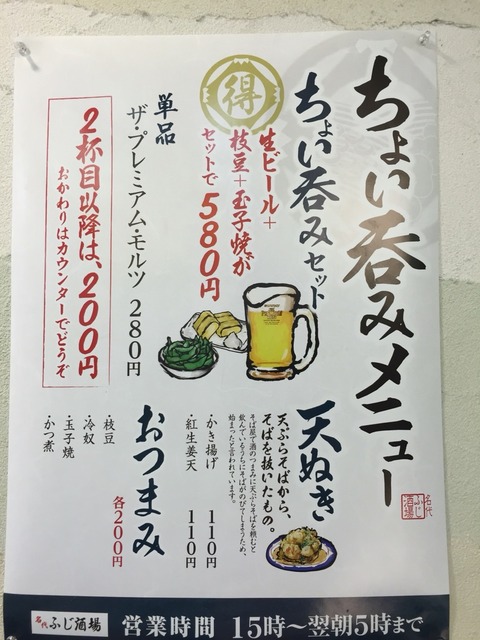 ちょい呑みメニュー
名代
ふじ
酒場
ちょい呑みセット
得
生ビール＋
枝豆＋玉子焼が
セットで580円
単品
ザ・プレミアム・モルツ 280円
2杯目以降は、200円
おかわりはカウンターでどうぞ
天ぬき
天ぷらそばから、
そばを抜いたもの。
そば屋で酒のつまみに天ぷらそばを頼むと
飲んでいるうちにそばがのびてしまうため、
始まったと言われています。
・かき揚げ 110円
・紅生姜天 110円
おつまみ
各200円
・枝豆
・冷奴
・玉子焼
・かつ煮
名代 ふじ酒場 営業時間 15時〜翌朝5時まで